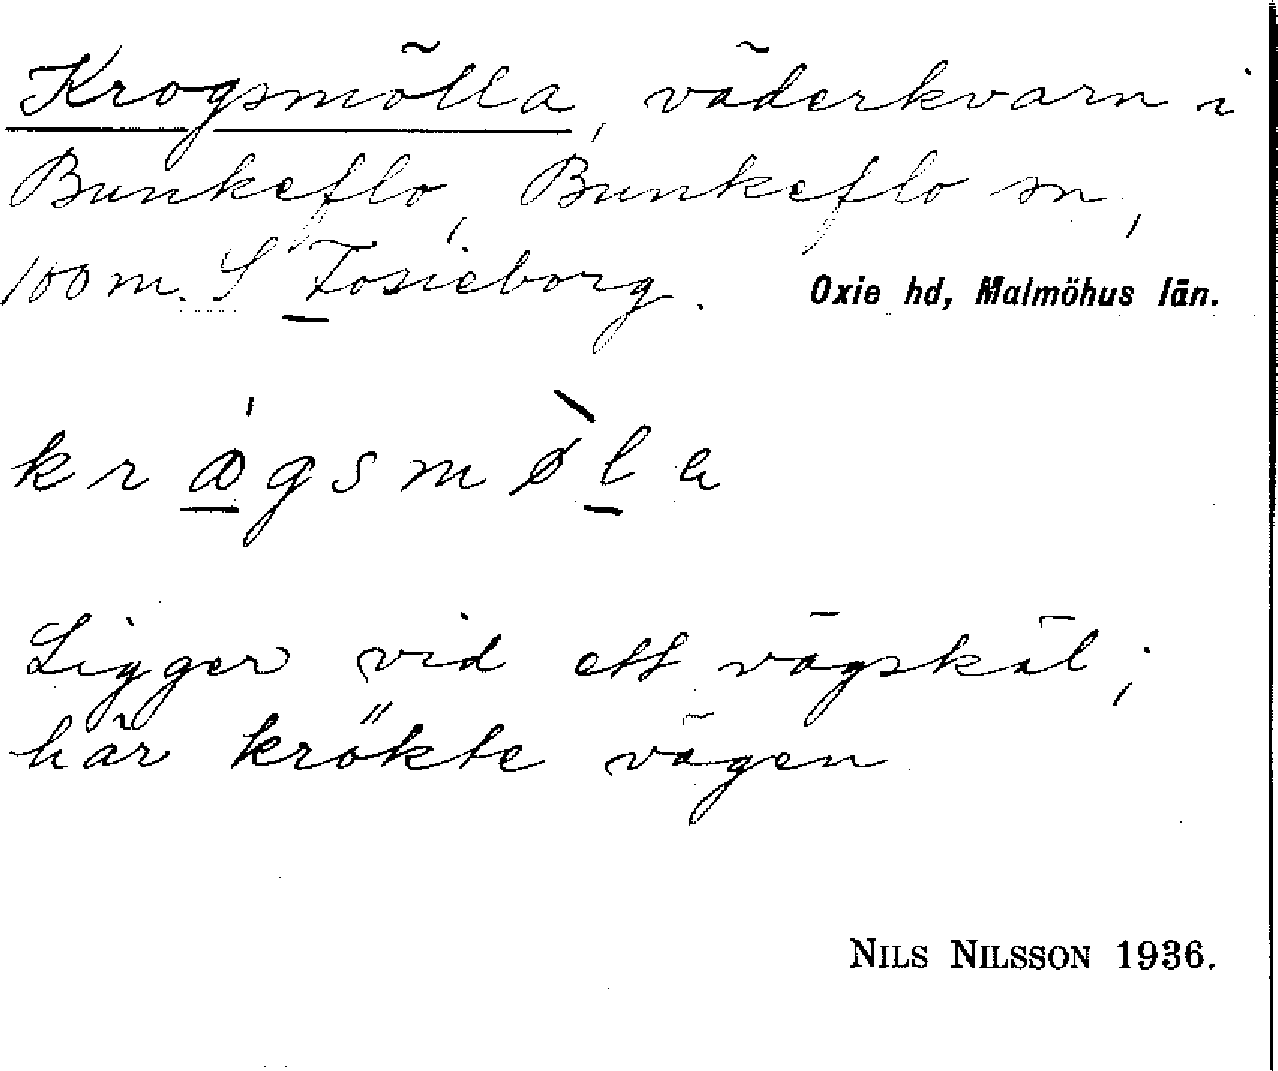 Krogsmölla, väderkvarn i
Bunkeflo, Bunkeflo sn,
100 m. S Fosieborg. Oxie hd, Malmöhus län.
Ligger vid ett vägskäl;
här krökte vägen
NILS NILSSON 1936.